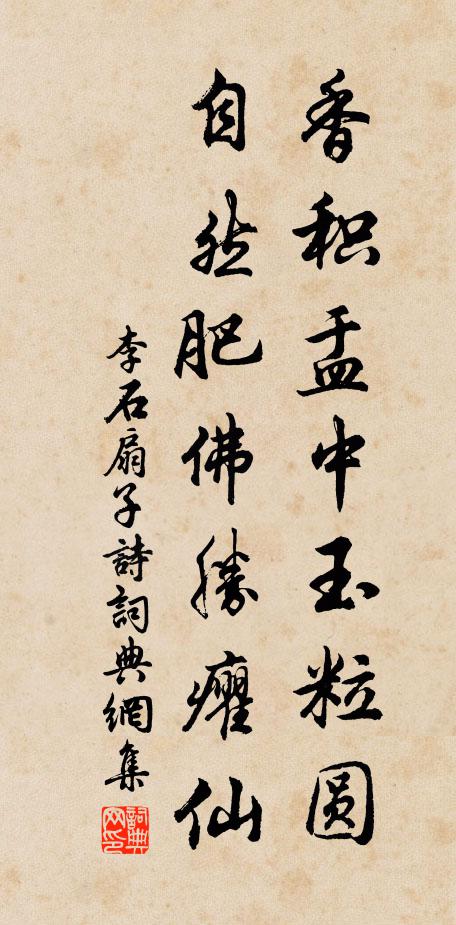 香积盂中玉粒圆
自然肥佛勝癯仙
李石扇子詩詞典網集
詞典网印